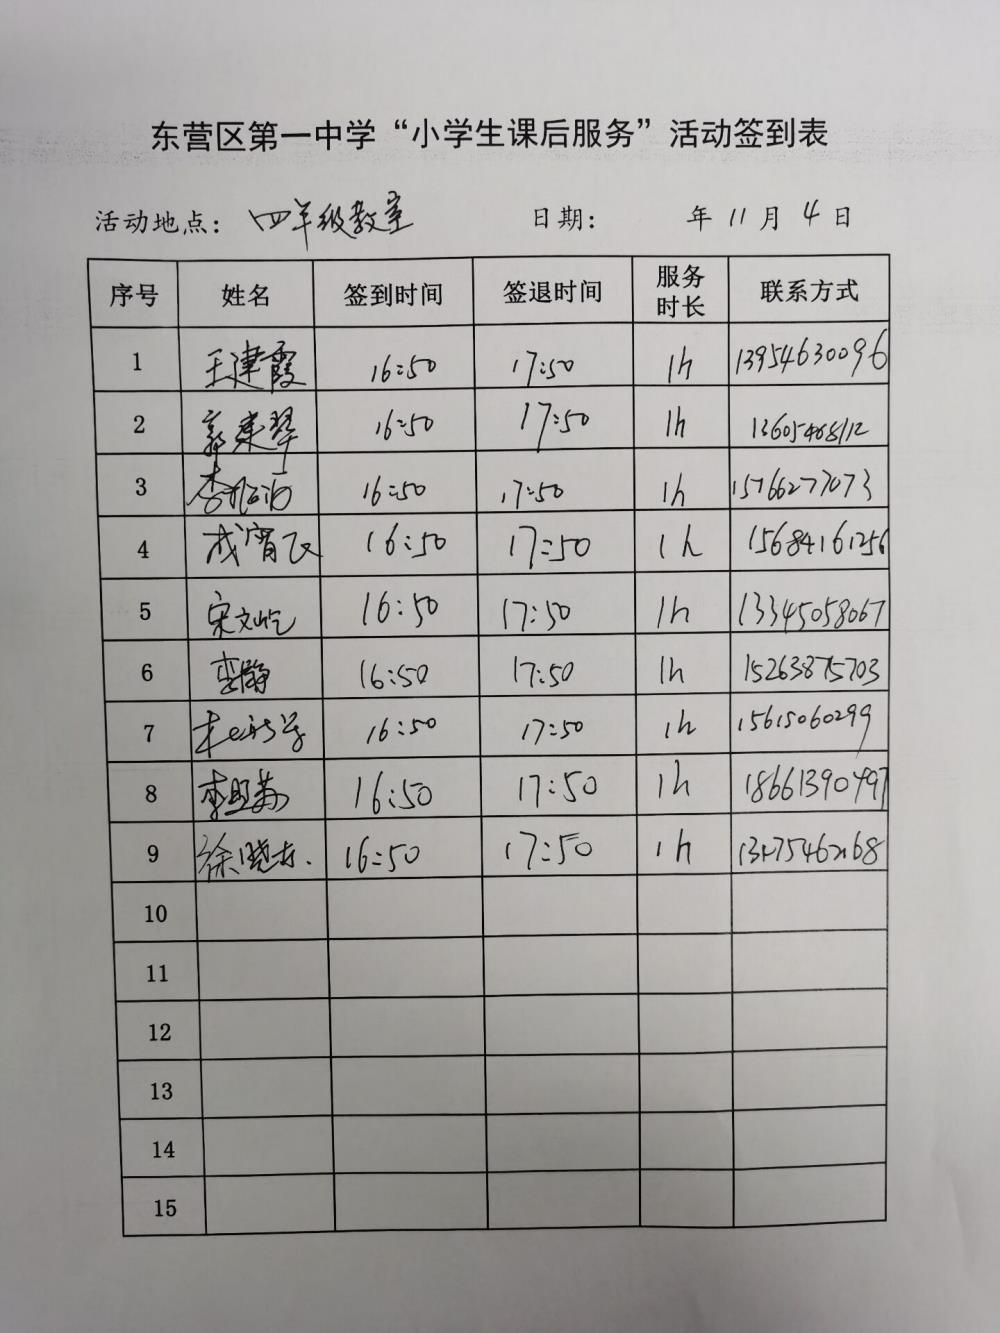 东营区第一中学“小学生课后服务”活动签到表
活动地点: 四年级教室 日期: 年 11 月 4 日
序号 姓名 签到时间 签退时间 服务时长 联系方式
1 王建霞 16:50 17:50 1h 13954630096
2 郭来翠 16:50 17:50 1h 13605468112
3 16:50 17:50 1h 15766277073
4 成霄飞 16:50 17:50 1h 15684161256
5 宋文屹 16:50 17:50 1h 13345058067
6 李静 16:50 17:50 1h 15263875703
7 16:50 17:50 1h 15615060299
8 16:50 17:50 1h 18661390497
9 徐晓 16:50 17:50 1h
10
11
12
13
14
15